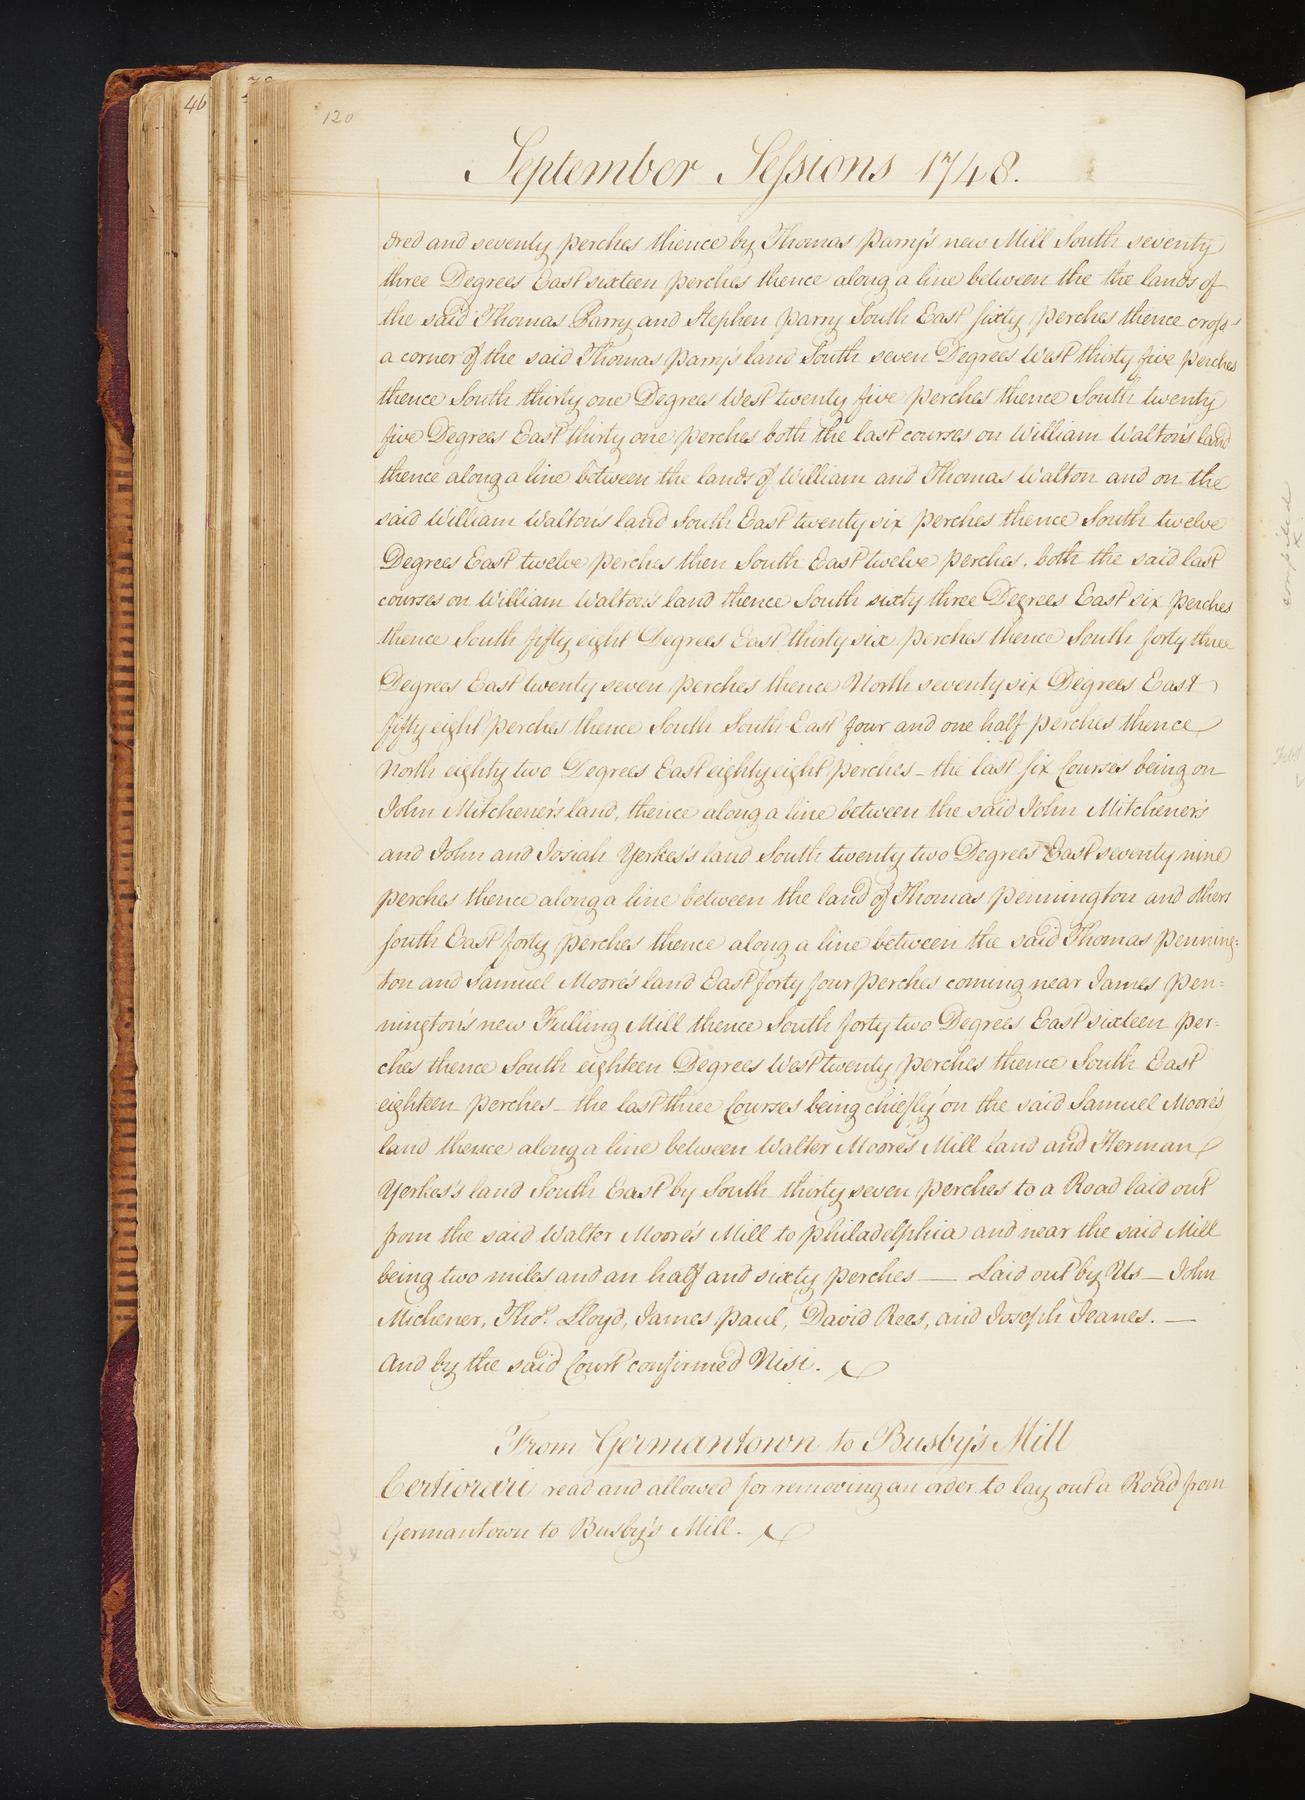 46
120
September Sessions 1748.
dred and seventy perches thence by Thomas Parry's new Mill South seventy
three Degrees East sixteen perches thence along a line between the the lands of
the said Thomas Parry and Stephen Parry South East sixty perches thence cross
a corner of the said Thomas Parry's land South seven Degrees West thirty five perches
thence South thirty one Degrees West twenty five perches thence South twenty
five Degrees East thirty one perches both the last courses on William Walton's land
thence along a line between the lands of William and Thomas Walton and on the
said William Walton's land South East twenty six perches thence South twelve
Degrees East twelve perches then South East twelve perches, both the said last
courses on William Walton's land thence South sixty three Degrees East six perches
thence South fifty eight Degrees East thirty six perches thence South forty three
Degrees East twenty seven perches thence North seventy six Degrees East
fifty eight perches thence South South-East four and one half perches thence
North eighty two Degrees East eighty eight perches - the last six Courses being on
John Mitchener's land, thence along a line between the said John Mitchener's
and John and Josiah Yerkes's land South twenty two Degrees East seventy nine
perches thence along a line between the land of Thomas Pennington and others
South East forty perches thence along a line between the said Thomas Penning=
ton and Samuel Moore's land East forty four perches coming near James Pen=
nington's new Fulling Mill thence South forty two Degrees East sixteen per=
ches thence South eighteen Degrees West twenty perches thence South East
eighteen perches - the last three Courses being chiefly on the said Samuel Moore's
land thence along a line between Walter Moore's Mill land and Herman
Yerkes's land South East by South thirty seven perches to a Road laid out
from the said Walter Moore's Mill to Philadelphia and near the said Mill
being two miles and an half and sixty perches — Laid out by Us — John
Michener, Thos. Lloyd, James Paul, David Rees, and Joseph Jeanes. —
And by the said Court confirmed Nisi.
From Germantown to Busby's Mill
Certiorari read and allowed for removing an order to lay out a Road from
Germantown to Busby's Mill.
compiled
compiled